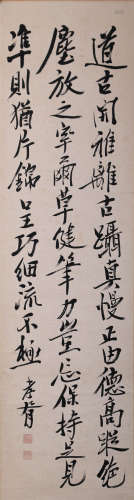 道古閑雅離古躡真慢正由德高蹤絕
塵放之寧爾草健筆力豈忘保持足見
準則猶片錦呈巧細流不極
孝胥